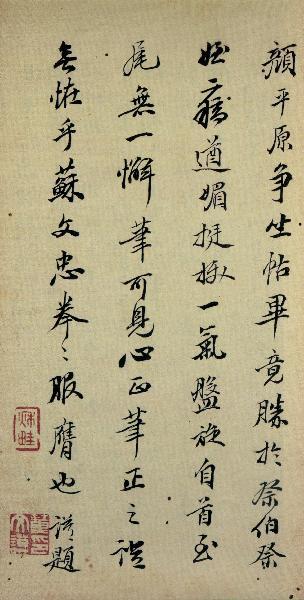 顔平原争坐帖畢竟勝於祭伯祭
姪二稿遒媚挺拔一氣盤旋自首至
尾無一懈筆可見心正筆正之
無怪乎蘇文忠拳〻服膺也 誥題